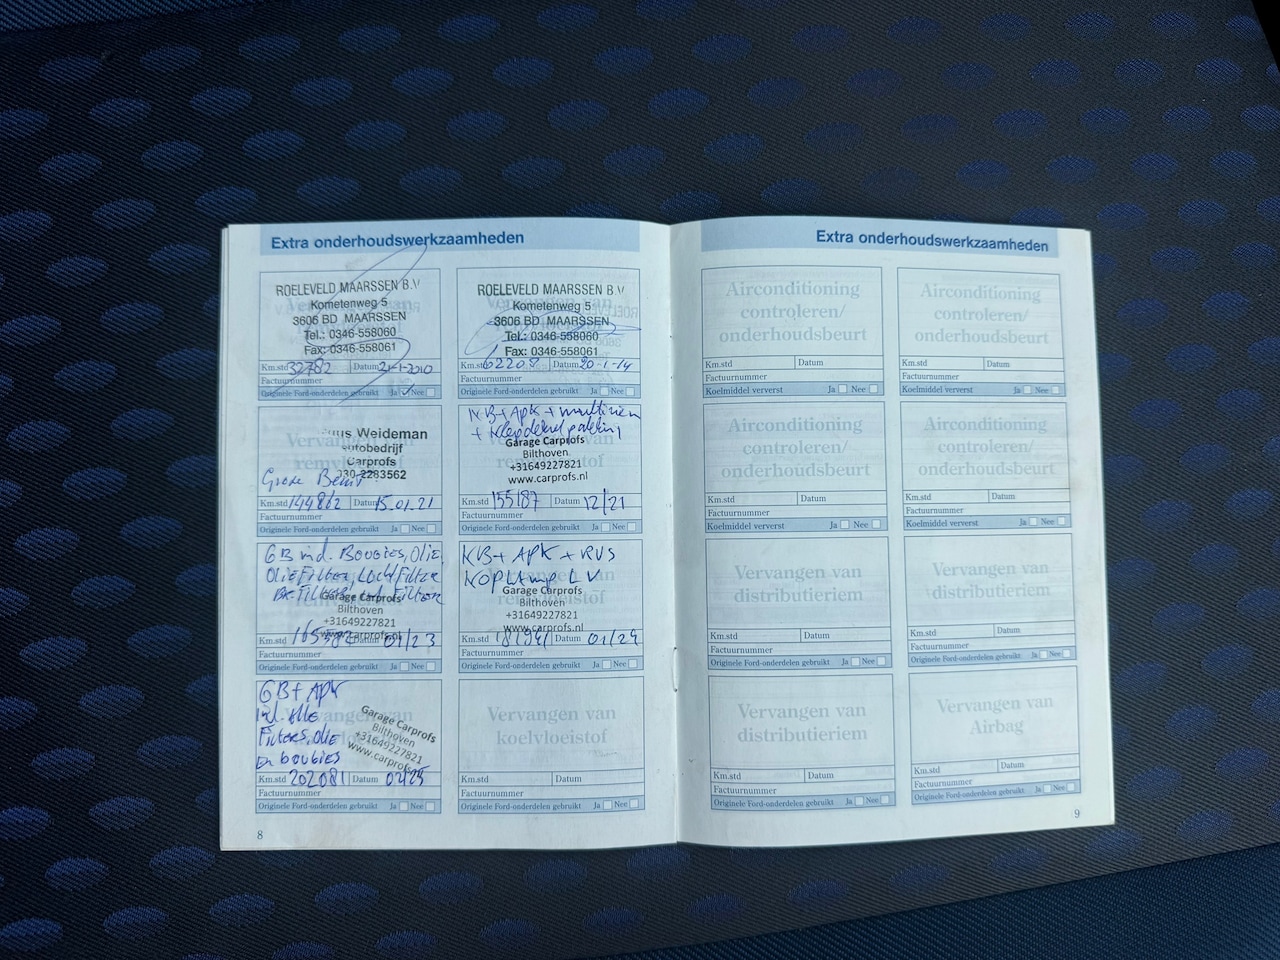 Extra onderhoudswerkzaamheden
ROELEVELD MAARSSEN B.V
Kometenweg 5
3606 BD MAARSSEN
Tel.: 0346-558060
Fax: 0346-558061
Km.std 32782 Datum 21-1-2010
Factuurnummer
Originele Ford-onderdelen gebruikt Ja Nee
ROELEVELD MAARSSEN B.V
Kometenweg 5
3606 BD MAARSSEN
Tel.: 0346-558060
Fax: 0346-558061
Km.std 62208 Datum 20-1-14
Factuurnummer
Originele Ford-onderdelen gebruikt Ja Nee
Vervangen van
remvloeistof
Weideman
autobedrijf
Carprofs
030-2283562
Grote Beurt
Km.std 144862 Datum 15.01.21
Factuurnummer
Originele Ford-onderdelen gebruikt Ja Nee
KB+APK + multiriem
+ klepdeksel pakking
Garage Carprofs
Bilthoven
+31649227821
www.carprofs.nl
Km.std 155187 Datum 12/21
Factuurnummer
Originele Ford-onderdelen gebruikt Ja Nee
GB incl. Bougies, Olie,
OlieFilter, LuchtFilter
Filter
Garage Carprofs
Bilthoven
+31649227821
www.carprofs.nl
Km.std Datum 01/23
Factuurnummer
Originele Ford-onderdelen gebruikt Ja Nee
KB+ APK + RVS
KOPLAmp LV
Garage Carprofs
Bilthoven
+31649227821
www.carprofs.nl
Km.std Datum 01/24
Factuurnummer
Originele Ford-onderdelen gebruikt Ja Nee
GB+ APK
incl. Alle
Filters, olie
en bougies
Garage Carprofs
Bilthoven
+31649227821
www.carprofs.nl
Km.std 202081 Datum 02/25
Factuurnummer
Originele Ford-onderdelen gebruikt Ja Nee
Vervangen van
koelvloeistof
Km.std Datum
Factuurnummer
Originele Ford-onderdelen gebruikt Ja Nee
8
Extra onderhoudswerkzaamheden
Airconditioning
controleren/
onderhoudsbeurt
Km.std Datum
Factuurnummer
Koelmiddel ververst Ja Nee
Airconditioning
controleren/
onderhoudsbeurt
Km.std Datum
Factuurnummer
Koelmiddel ververst Ja Nee
Airconditioning
controleren/
onderhoudsbeurt
Km.std Datum
Factuurnummer
Koelmiddel ververst Ja Nee
Airconditioning
controleren/
onderhoudsbeurt
Km.std Datum
Factuurnummer
Koelmiddel ververst Ja Nee
Vervangen van
distributieriem
Km.std Datum
Factuurnummer
Originele Ford-onderdelen gebruikt Ja Nee
Vervangen van
distributieriem
Km.std Datum
Factuurnummer
Originele Ford-onderdelen gebruikt Ja Nee
Vervangen van
distributieriem
Km.std Datum
Factuurnummer
Originele Ford-onderdelen gebruikt Ja Nee
Vervangen van
Airbag
Km.std Datum
Factuurnummer
Originele Ford-onderdelen gebruikt Ja Nee
9